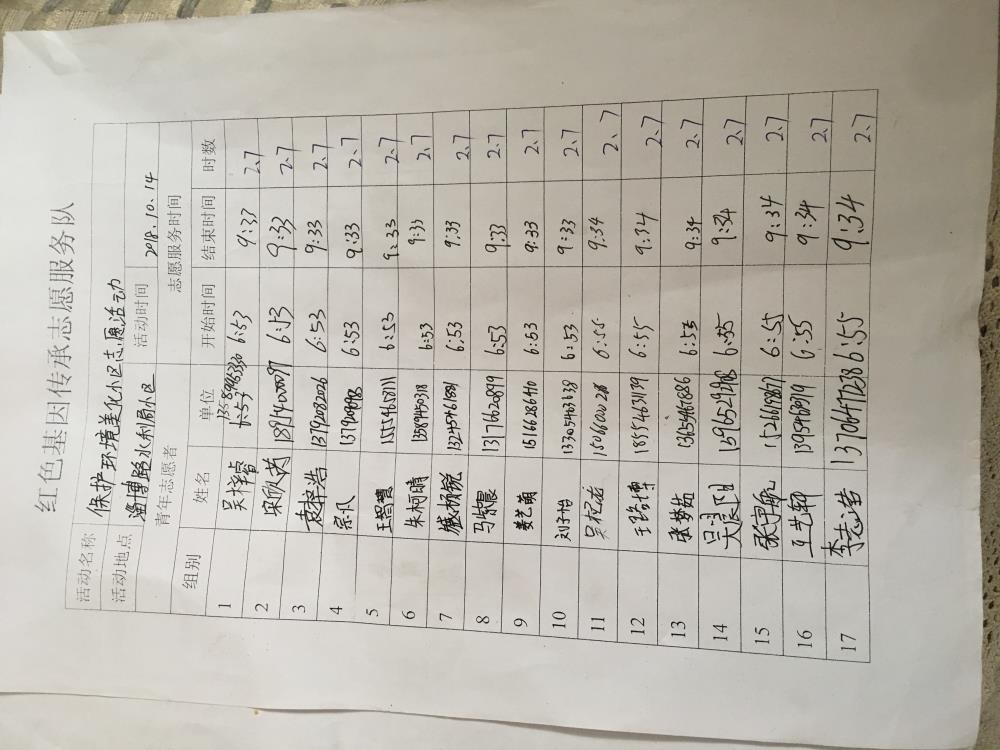 红色基因传承志愿服务队
活动名称 保护环境美化小区志愿活动
活动地点 淄博路水利局小区 活动时间 2018.10.14
青年志愿者 志愿服务时间
组别 姓名 单位 开始时间 结束时间 时数
1 吴梓睿 6:53 9:33 2、7
2 宋欣芮 6:53 9:33 2、7
3 袁梓浩 13792082026 6:53 9:33 2、7
4 宗凡 6:53 9:33 2、7
5 王 15554658111 6:53 9:33 2、7
6 朱柯晴 13589450318 6:53 9:33 2、7
7 杨锐 6:53 9:33 2、7
8 马 晨 13176620899 6:53 9:33 2、7
9 姜艺萌 15166286410 6:53 9:33 2、7
10 刘子怡 13305463638 6:53 9:33 2、7
11 吴 6:55 9:34 2、7
12 王 博 18554631139 6:55 9:34 2、7
13 张梦茹 13655467886 6:55 9:34 2、7
14 6:55 9:34 2、7
15 张宇航 6:55 9:34 2、7
16 6:55 9:34 2、7
17 李志浩 13706471238 6:55 9:34 2、7